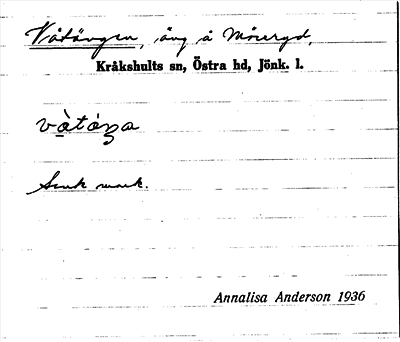 Våtängen, äng å Möceryd,
Kråkshults sn, Östra hd, Jönk. l.
vàtáŋa
Sank mark.
Annalisa Anderson 1936